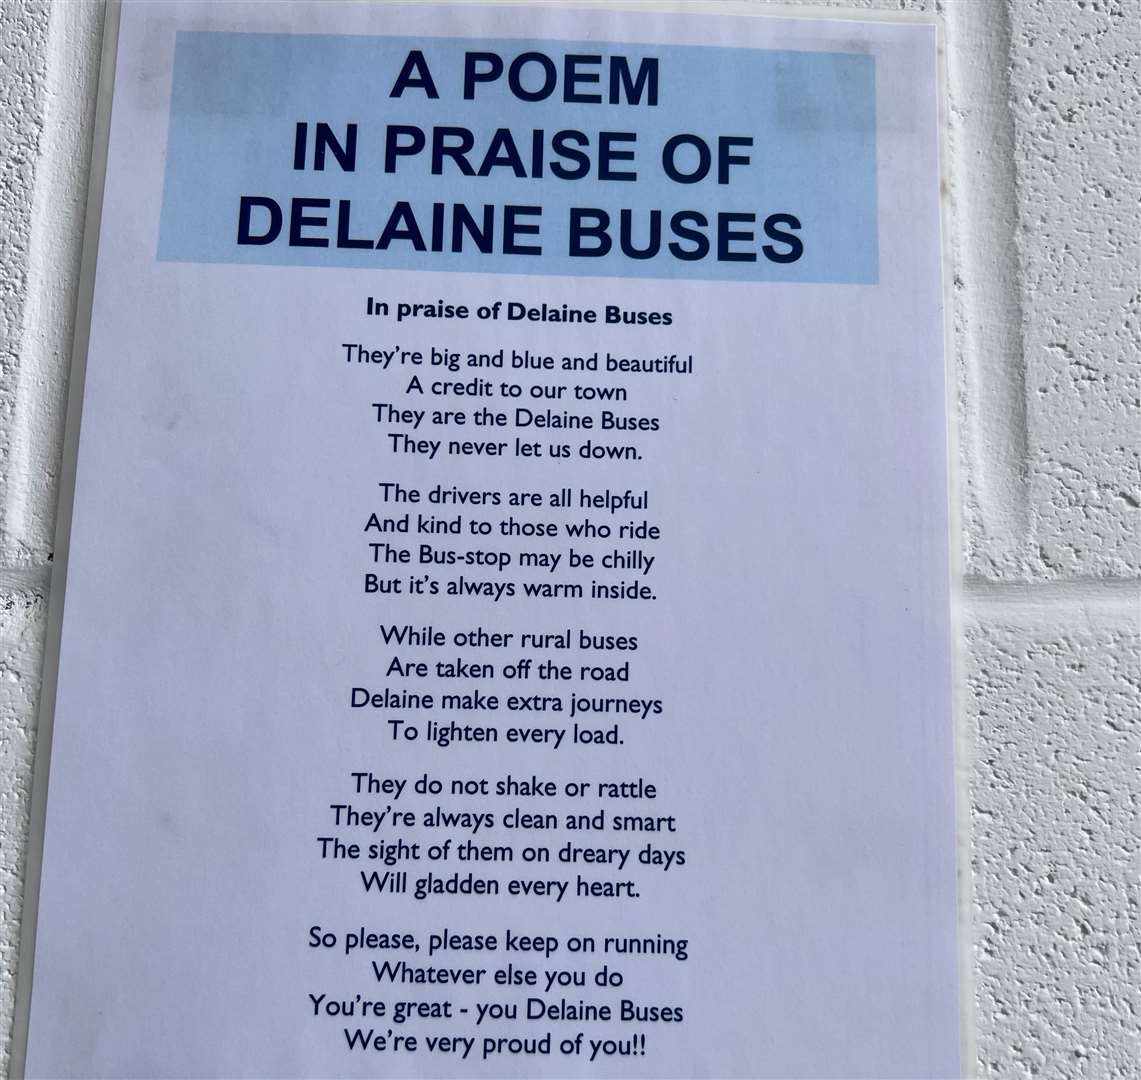 A POEM
IN PRAISE OF
DELAINE BUSES
In praise of Delaine Buses
They're big and blue and beautiful
A credit to our town
They are the Delaine Buses
They never let us down.
The drivers are all helpful
And kind to those who ride
The Bus-stop may be chilly
But it's always warm inside.
While other rural buses
Are taken off the road
Delaine make extra journeys
To lighten every load.
They do not shake or rattle
They're always clean and smart
The sight of them on dreary days
Will gladden every heart.
So please, please keep on running
Whatever else you do
You're great - you Delaine Buses
We're very proud of you!!